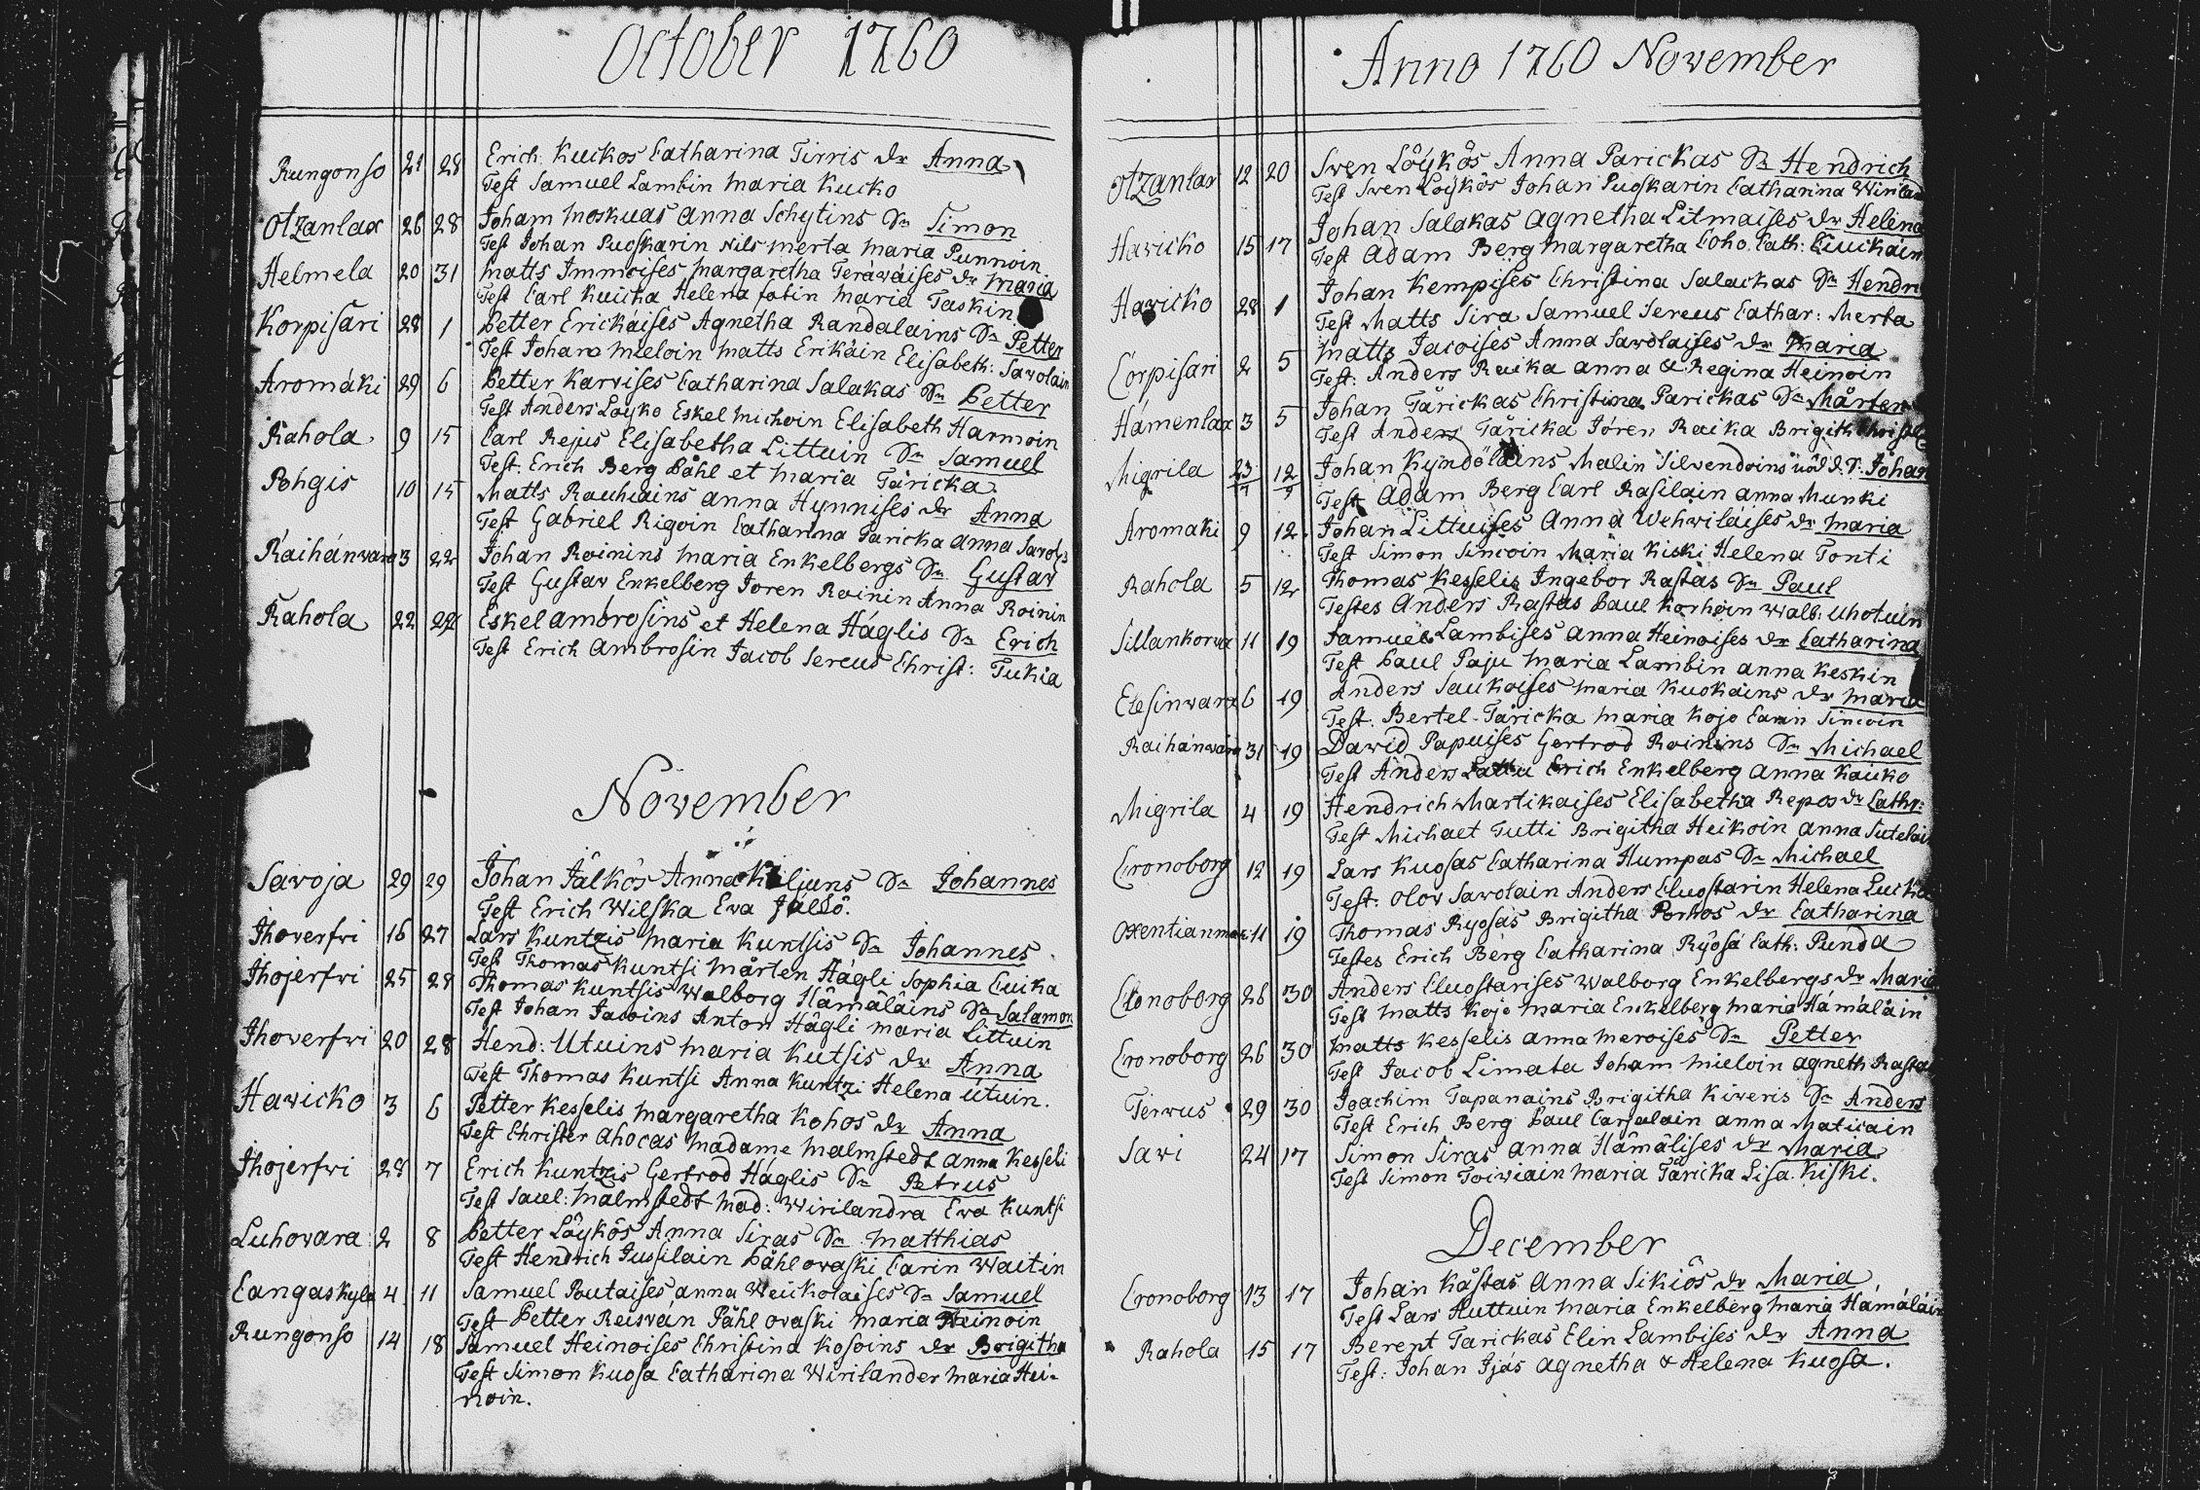 October 1760
Rungonso 21 28 Erich Kuckos Catharina Tirris dr Anna
Test Samuel Lambin Maria Kucko
Otzanlax 26 28 Joham Moskuas Anna Schytins Sn Simon
Test Johan Puoskarin Nils Merta Maria Punnoin
Helmela 20 31 Matts Immoises Margaretha Teräwäises dr Maria
Test Carl Kuicka Helena Maria Taskin
Korpisari 28 1 Petter Erickäises Agnetha Randalains Sn Petter
Test Johan Mieloin Matts Erikäin Elisabeth: Savolain
Aromäki 29 6 Petter Karvises Catharina Salakas Sn Petter
Test Anders Loyko Eskel Michoin Elisabeth Harmoin
Rahola 9 15 Carl Rejus Elisabetha Littuin Sn Samuel
Test: Erich Berg Påhl et Maria Täricka
Pohgis 10 15 Matts Rauhiains Anna Hynnises dr Anna
Test Gabriel Rigoin Catharina Paricka Anna
Raihänvara 3 22 Johan Roinins Maria Enkelbergs Sn Gustav
Test Gustav Enkelberg Joren Roinin Anna Roinin
Rahola 22 Eskel Ambrosins et Helena Häglis Sn Erich
Test Erich Ambrosin Jacob Sereus Christ: Tukia
November
Savoja 29 29 Johan Jälkös Anna Kiljuns Sn Johannes
Test Erich Wilska Eva
Jhoverfri 16 27 Lars Kuntzis Maria Kuntsis Sn Johannes
Test Thomas Kuntsi Mårten Hägli Sophia Cuika
Jhojerfri 25 28 Thomas Kuntsis Walborg Hämäläins Sn Salamon
Test Johan Jacoins Anton Hägli Maria Littuin
Jhoverfri 20 28 Hend: Utuins Maria Kutsis dr Anna
Test Thomas Kuntsi Anna Kuntzi Helena Utuin.
Havicko 3 6 Petter Kesselis Margaretha Kohos dr Anna
Test Christer Ahocas Madame Malmstedt Anna Kesseli
Jhojerfri 28 7 Erich Kuntzis Gertrod Häglis Sn Petrus
Test Saul: Malmstedt Mad: Wirilandra Eva Kuntsi
Luhovara 2 8 Petter Löykös Anna Siras Sn Matthias
Test Hendrich Jussilain Påhl Ovaski Carin Waitin
Cangaskyla 4 11 Samuel Poutaises Anna Weickolaises Sn Samuel
Test Petter Reisvän Påhl Ovaski Maria Heinoin
Rungonso 14 18 Samuel Heinoises Christina Kosoins dr Brigitha
Test Simon Kuosa Catharina Wirilander Maria Hei-
noin.
Anno 1760 November
Otzanlax 12 20 Sven Löykös Anna Parickas Sn Hendrich
Test Sven Loykös Johan Puoskarin Catharina
Havicko 15 17 Johan Salakas Agnetha Litmaises dr Helena
Test Adam Berg Margaretha Coho. Cath:
Havicko 28 1 Johan Kempises Christina Salackas Sn
Test Matts Sira Samuel Sereus Cathar: Merta
Corpisari 2 5 Matts Jacoises Anna Savolaises dr Maria
Test: Anders Raika Anna & Regina Heinoin
Hämenlax 3 5 Johan Tärickas Christina Parickas Sn Mårten
Test Anders Täricka Jören Raika Brigith
Migrila 12 Johan Kyndöläins Malin Silvendoins
Test Adam Berg Carl Rasilain Anna Munki
Aromaki 9 12 Johan Littuises Anna Wehwiläises dr Maria
Test Simon Sincoin Maria Kiski Helena Tonti
Rahola 5 12 Thomas Kesselis Ingebor Rastas Sn Paul
Testes Anders Rastas Paul Korhoin Walb: Uhotuin
Sillankorva 11 19 Samuel Lambises Anna Heinoises dr Catharina
Test Paul Paju Maria Lambin Anna Keskin
Elesinvara 6 19 Anders Saukoises Maria Kuokains dr Maria
Test. Bertel Täricka Maria Kojo Carin Sincoin
Raihänvara 31 19 David Papuises Gertrod Roinins Sn Michael
Test Anders Lattu Erich Enkelberg Anna Kaicko
Migrila 4 19 Hendrich Martikaises Elisabetha Repos dr Cathr:
Test Michael Tutti Brigitha Heikoin Anna
Cronoborg 12 19 Lars Kuosas Catharina Humpas Sn Michael
Test: Olov Savolain Anders Cluostarin Helena
11 19 Thomas Ryosas Brigitha Porkos dr Catharina
Testes Erich Berg Catharina Ryösä Cath: Punda
Cronoborg 28 30 Anders Cluostarises Walborg Enkelbergs dr Maria
Test Matts Kojo Maria Enkelberg Maria Hämäläin
Cronoborg 26 30 Matts Kesselis Anna Meroises Sn Petter
Test Jacob Limata Joham Mieloin Agneth Rasta
Tervus 29 30 Joachim Tapanains Brigitha Kiveris Sn Anders
Test Erich Berg Paul Carjalain Anna Maticain
Savi 24 17 Simon Siras Anna Hämälises dr Maria
Test Simon Toiviain Maria Täricka Lisa Kiski.
December
Cronoborg 13 17 Johan Kåstas Anna Sikiös dr Maria
Test Lars Huttuin Maria Enkelberg Maria Hämäläin
Rahola 15 17 Berent Tarickas Elin Lambises dr Anna
Test: Johan Ijäs Agnetha & Helena Kuosa.